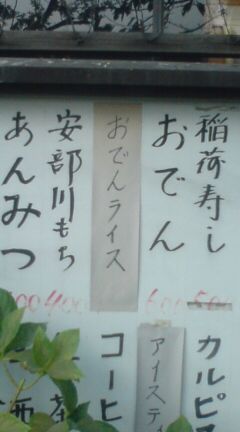 稲荷寿し
おでん
おでんライス
安部川もち
あんみつ
500
600
400
00
カルピス
アイスティ
コーヒ
茶
酒